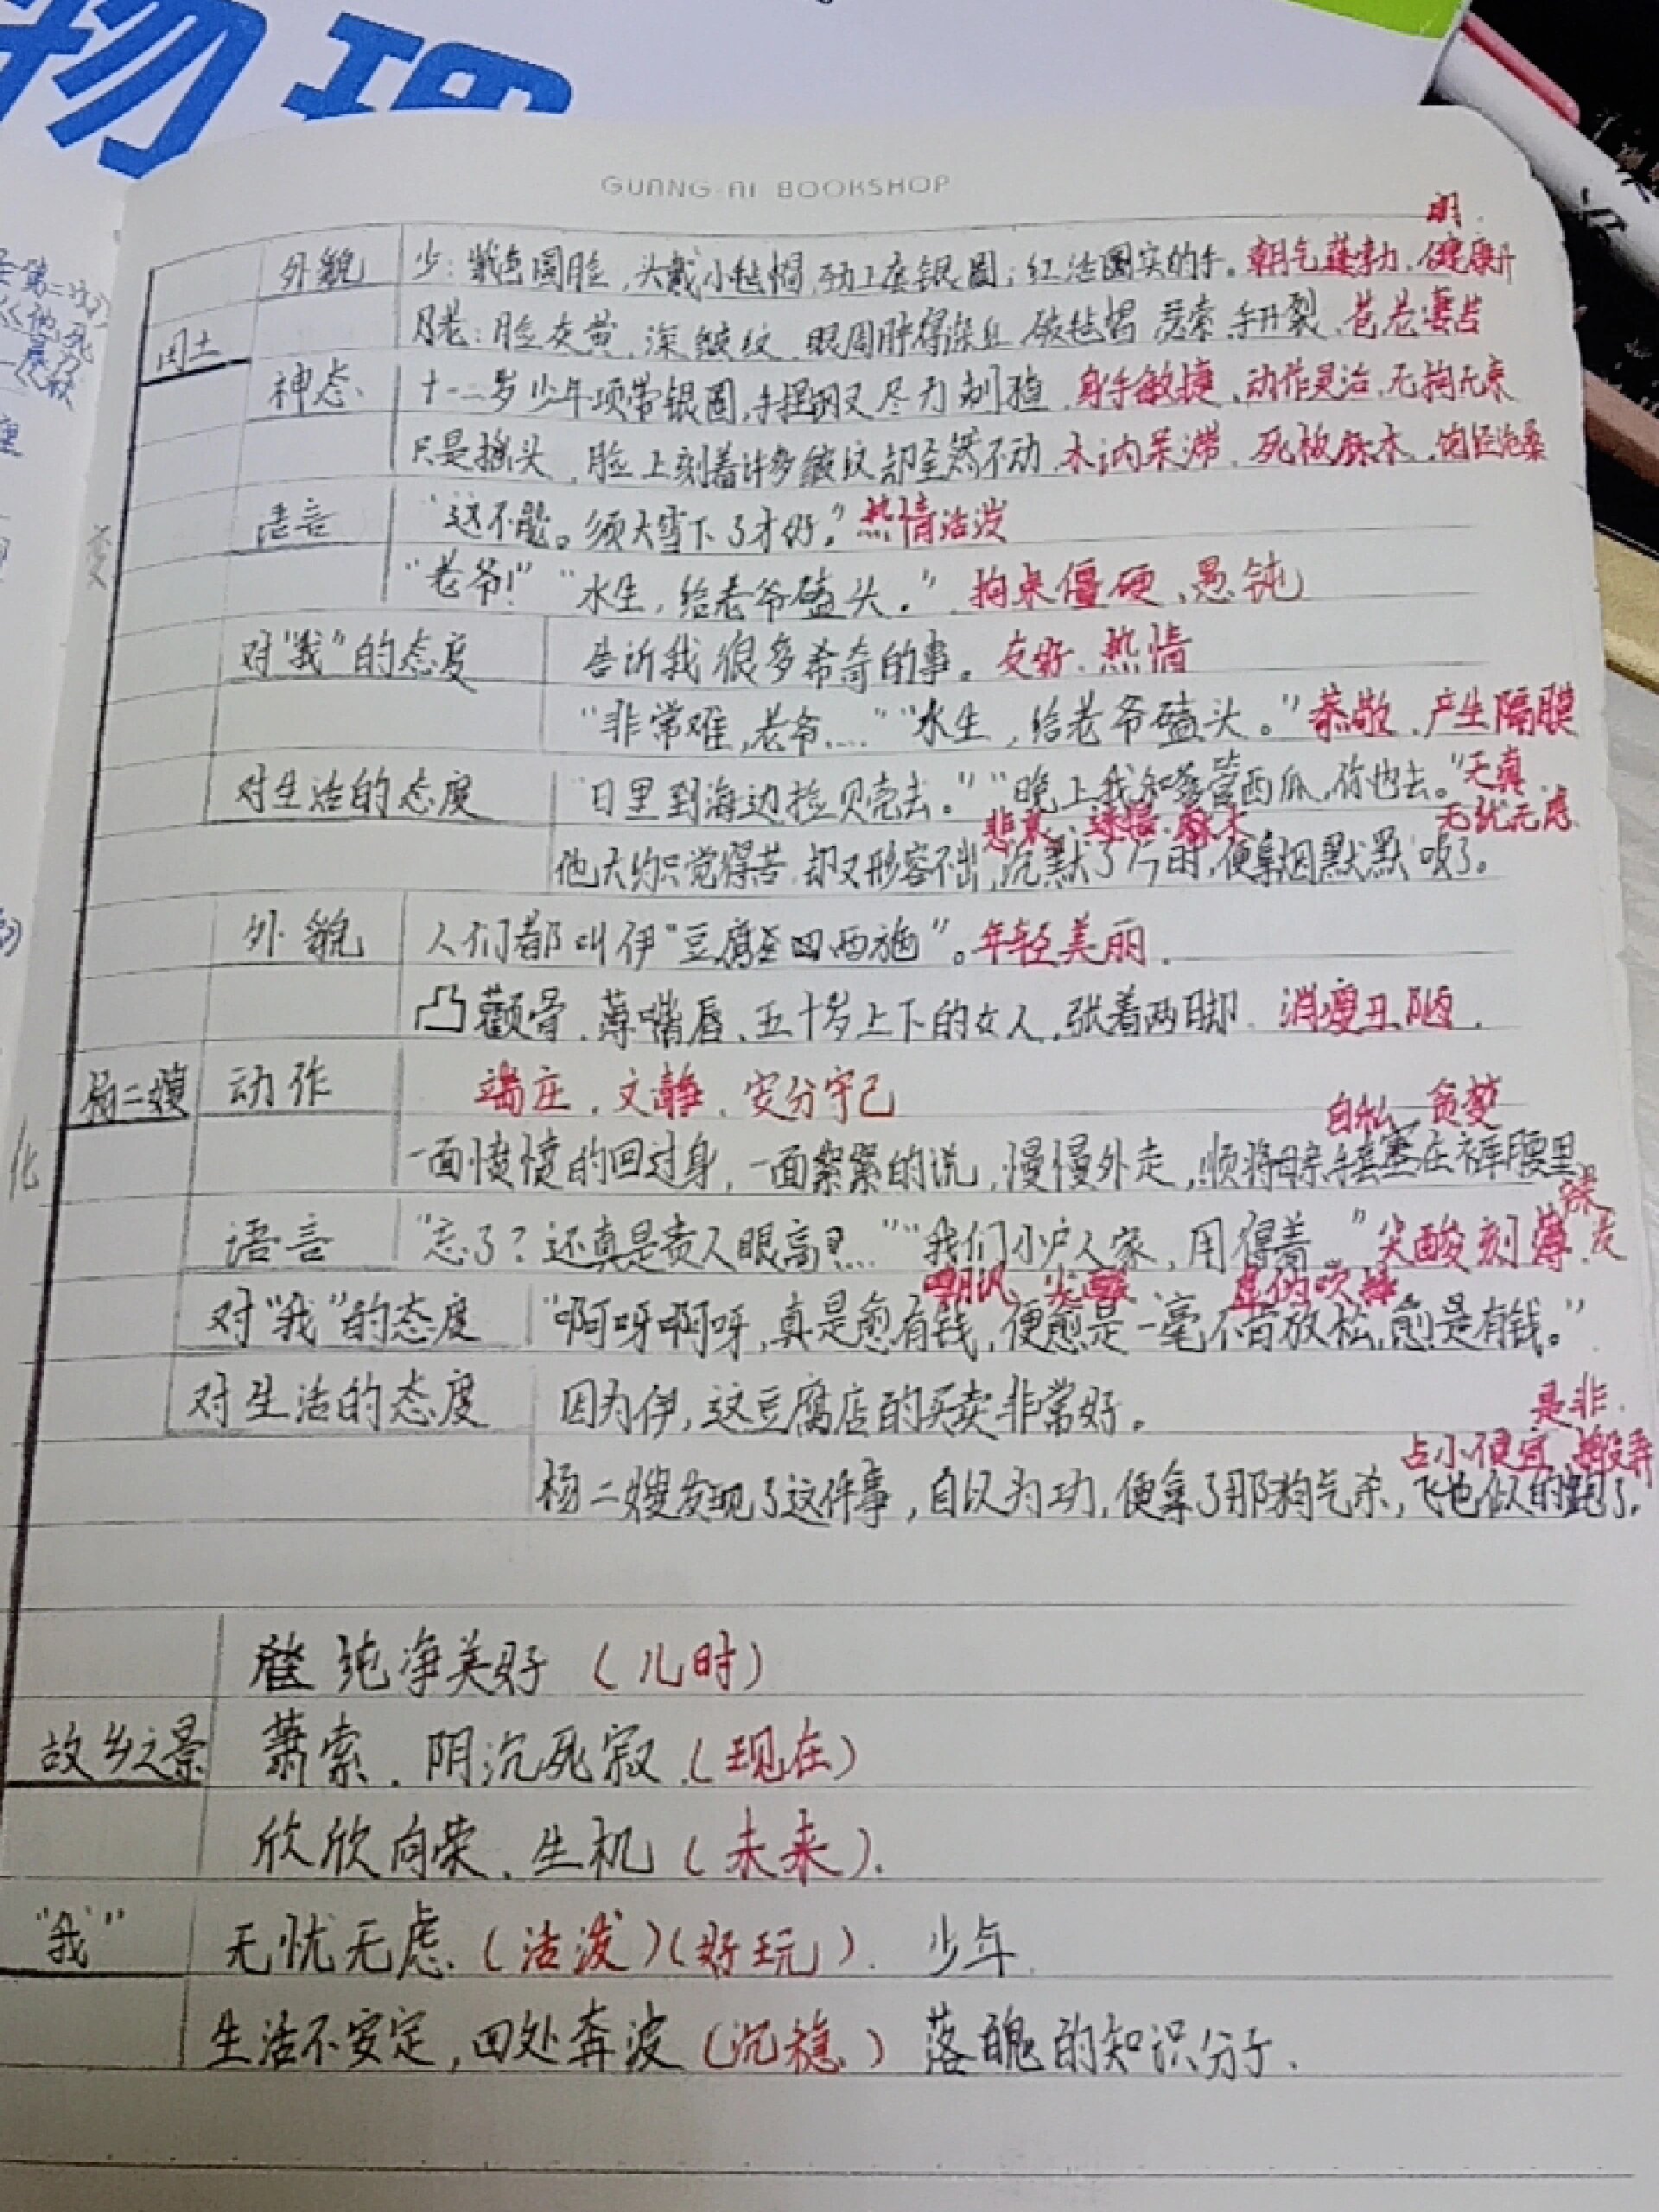 物理
GUANG AI BOOKSHOP
明
外貌 少：紫色圆脸，头戴小毡帽，颈上套银圈；红活圆实的手。朝气蓬勃、健康开
老：脸灰黄，深皱纹，眼周肿得深红 破毡帽 手开裂、苍老凄苦
闰土
神态 十一二岁少年项带银圈，手捏钢叉尽力刺猹 身手敏捷、动作灵活、无拘无束
只是摇头，脸上刻着许多皱纹却全然不动、木讷呆滞、死板麻木、饱经沧桑
语言 “这不能。须大雪下了才好。”热情活泼
变
“老爷！”“水生，给老爷磕头。”拘束僵硬、愚钝
对“我”的态度 告诉我很多希奇的事。友好、热情
“非常难，老爷....”“水生，给老爷磕头。”恭敬、产生隔膜
对生活的态度 “日里到海边捡贝壳去。”“晚上我和爹管西瓜，你也去。”天真
悲哀、麻木 无忧无虑
他大约只觉得苦，却又形容不出，沉默了片时，便拿烟默默吸了。
外貌 人们都叫伊“豆腐西施”。年轻美丽.
凸颧骨、薄嘴唇、五十岁上下的女人，张着两脚. 消瘦丑陋.
杨二嫂 动作 端庄、文静、安分守己
自私 贪婪
一面愤愤的回过身，一面絮絮的说，慢慢外走，顺将母亲手套塞在裤腰里
化
语言 “忘了？还真是贵人眼高...”“我们小户人家，用得着。”尖酸刻薄、泼
嘲讽、尖酸 虚伪
对“我”的态度 “啊呀啊呀，真是愈有钱，便愈是一毫不肯放松，愈是有钱。”
对生活的态度 因为伊，这豆腐店的买卖非常好。
是非.
占小便宜、搬弄
杨二嫂发现了这件事，自以为功，便拿了那狗气杀，飞也似的跑了。
纯净美好（儿时）
故乡之景 萧索、阴沉死寂（现在）
欣欣向荣、生机（未来）.
“我” 无忧无虑.（活泼）（好玩）. 少年.
生活不安定，四处奔波（沉稳.）落魄的知识分子.